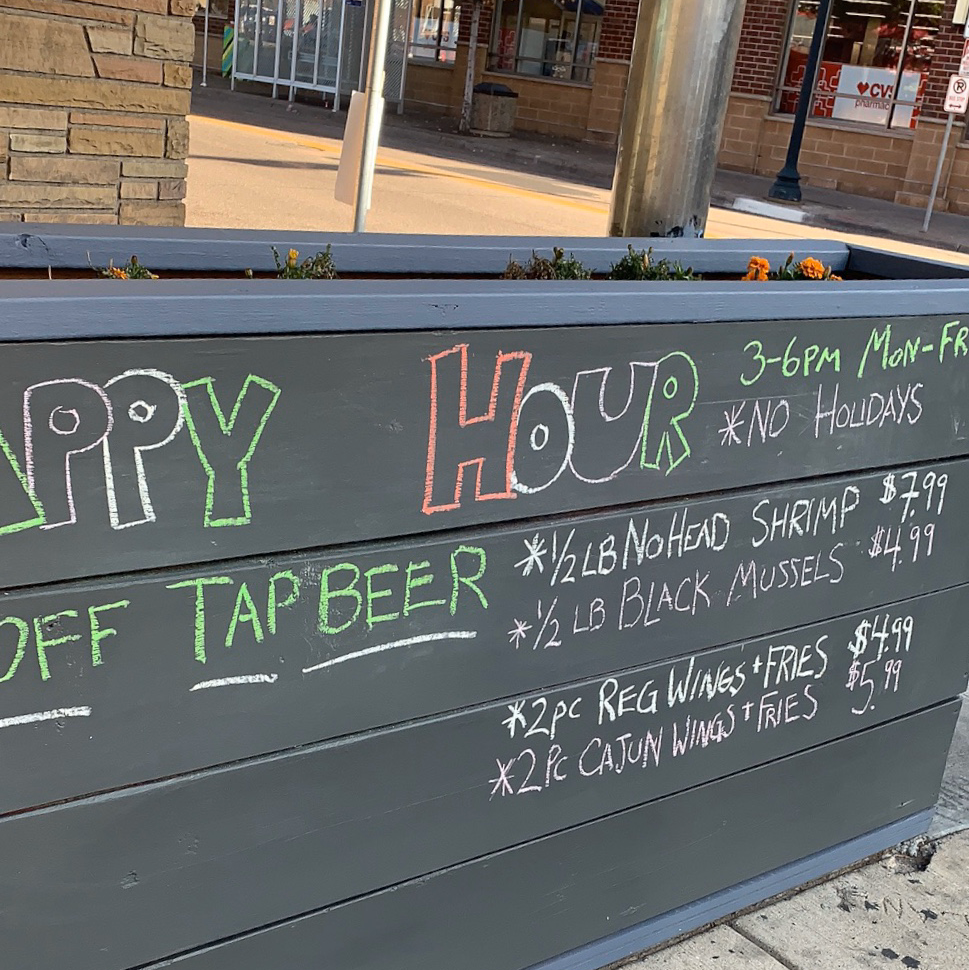 CVS
pharmacy
APPY HOUR
3-6PM MON-FR
*NO HOLIDAYS
OFF TAP BEER
*1/2 LB NO HEAD SHRIMP $7.99
*1/2 LB BLACK MUSSELS $4.99
*2PC REG WINGS + FRIES $4.99
*2PC CAJUN WINGS + FRIES $5.99